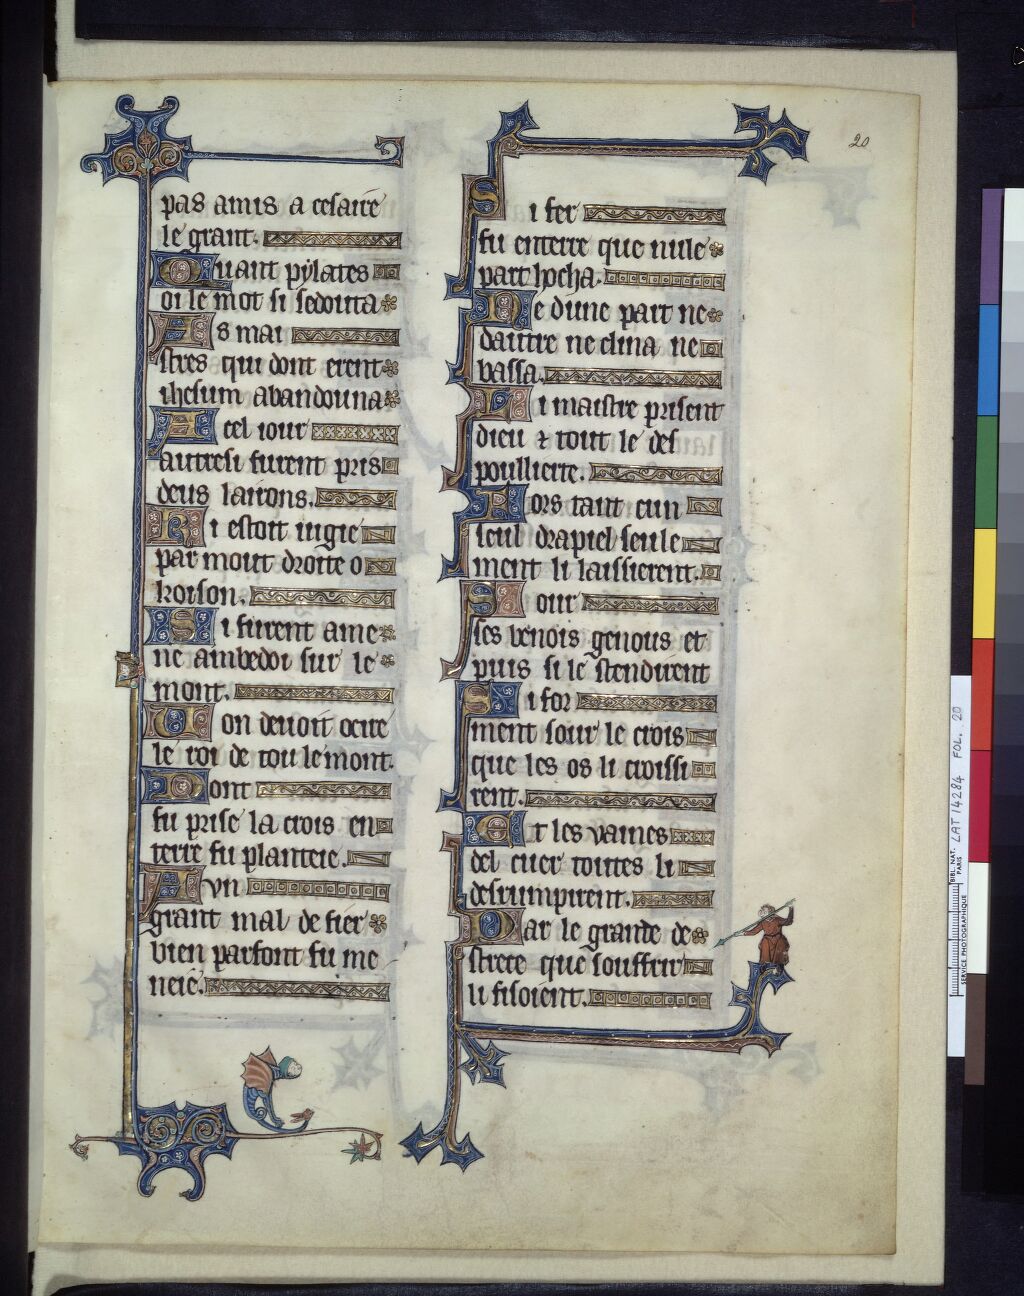 20
pas amis a cesaire
le grant.
Quant pylates
oi le mot si se douta
Es mai
stres qui dont erent
ihesum abandouna
A cel iour
autresi furent pris
deus lairons.
Ki estoit iugie
par mout droite o
koison.
Si furent ame
ne ambedoi sur le
mont.
Con deuoit ocire
le roi de tou le mont.
Dont
fu prise la crois en
terre fu planteie.
A vn
grant mal de fier
bien parfont fu me
neie.
Si fer
fu enterre que nule
part hocha.
Ne dune part ne
dautre ne clina ne
bassa.
Li maistre prisent
dieu ⁊ tout le des
poullierre.
Fors tant cun
seul drapiel seule
ment li laissierent.
Sour
ses benois genous et
puis si le stendirent
Si for
ment sour le crois
que les os li croissi
rent.
Et les vaines
del cuer toutes li
desrumpirent.
Par le grande de
strece que souffrir
li fisoient.
BIBL. NAT. PARIS
LAT 14284 FOL. 20
SERVICE PHOTOGRAPHIQUE